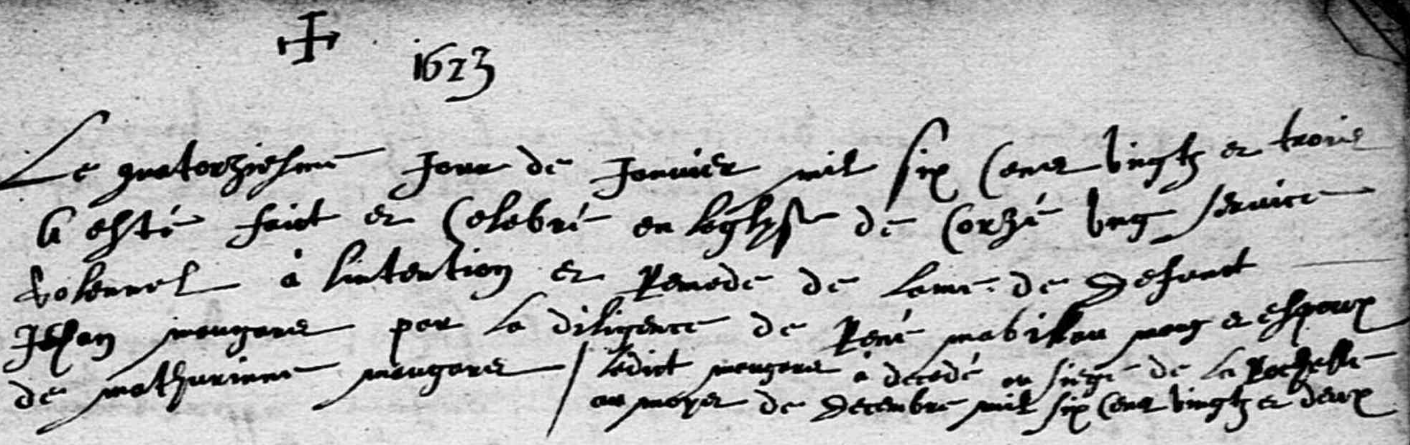 1623
Le quatorziesme Jour de Janvier mil six Cens vingtz et trois
a esté faict et Celebré en leglyse de Corzé ung service
solennel à lintention et Remede de lame de defunct
Jehan mengars par la diligence de René mabilleau mary et espoux
de mathurinne mengars / ledict mengars a décédé au siege de la Rochelle
au moys de decembre mil six Cens vingtz et deux